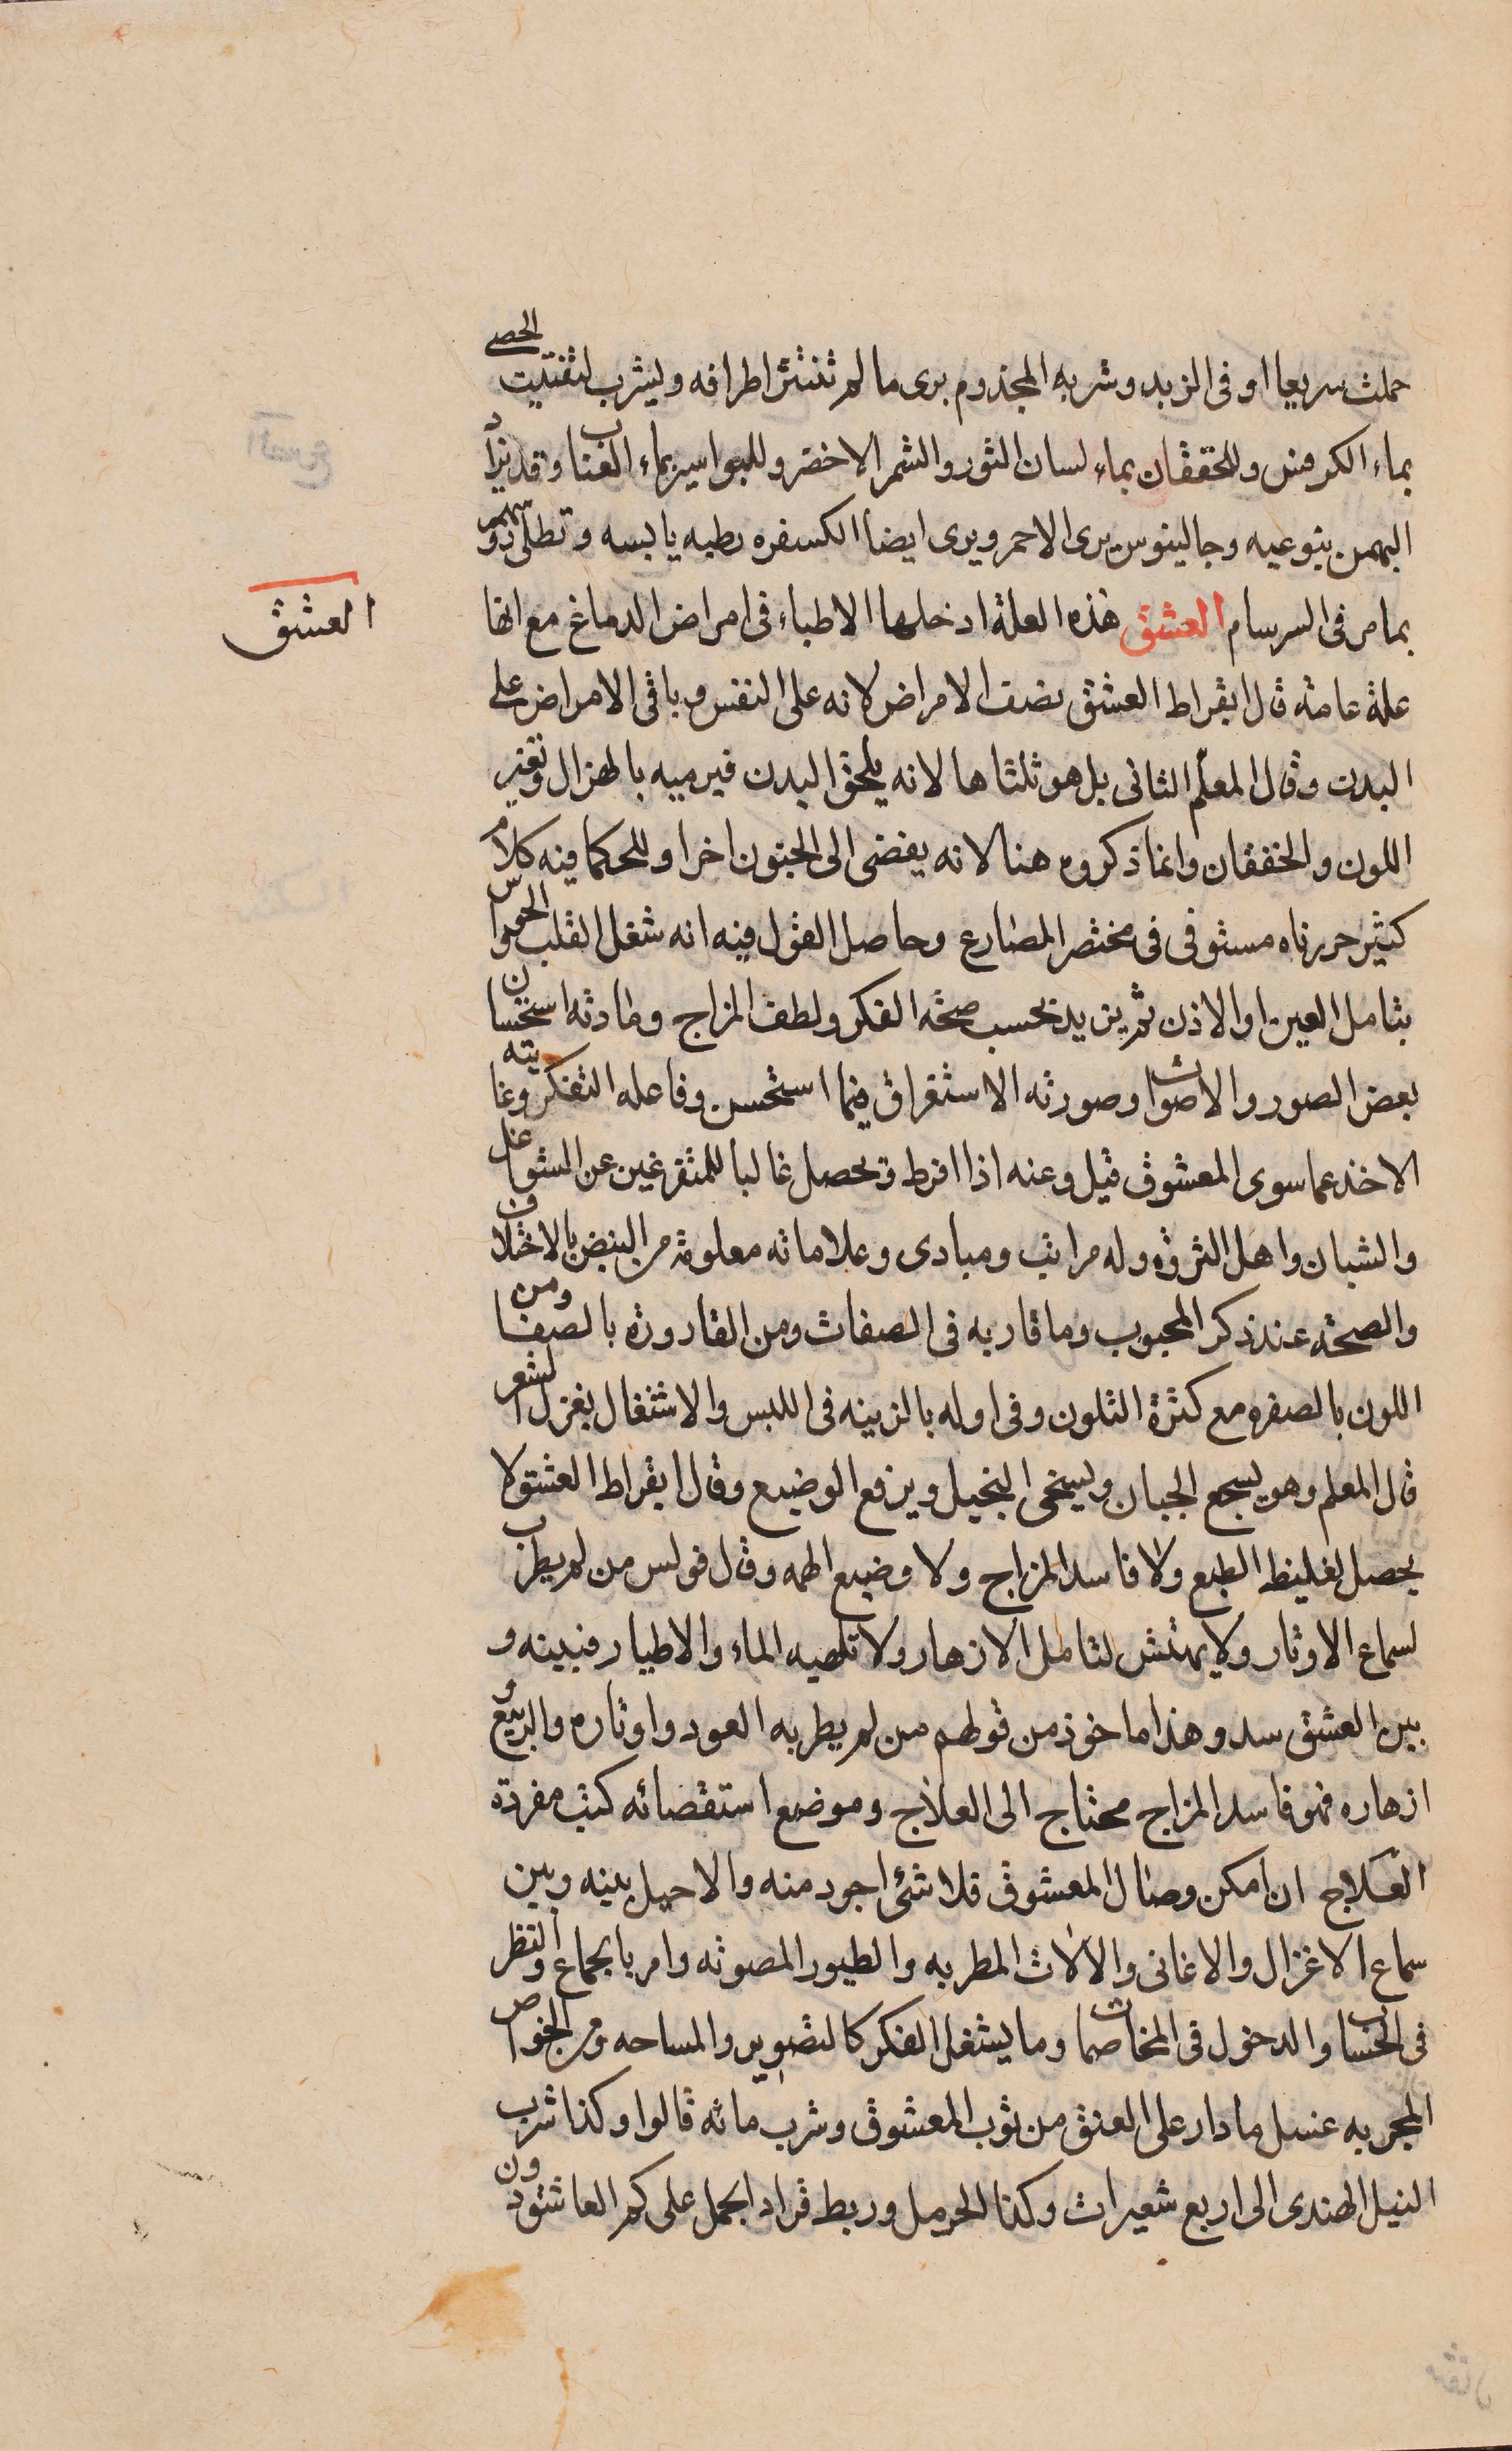 حملت سريعا او فى الزبد وشربه المجذوم برى ما لم تنتثر اطرافه ويشرب لتفتيت الحصى
بماء الكرفس وللخفقان بماء لسان الثور والشمر الاخضر وللبواسير بماء العناب وقد يزاد
البهمن بنوعيه وجالينوس يرى الاحمر ويرى ايضا الكسفره رطبه يابسه وتطلى رؤسهم
بما مر فى السرسام العشق هذه العلة ادخلها الاطباء فى امراض الدماغ مع انها
العشق
علة عامة قال ابقراط العشق نصف الامراض لانه على النفس وباقى الامراض على
البدن وقال المعلم الثانى بل هو ثلثاها لانه يلحق البدن فيرميه بالهزال وتغير
اللون والخفقان وانما ذكروه هنا لانه يفضى الى الجنون اخرا وللحكما فيه كلام
كثير حررناه مستوفى فى مختصر المصارع وحاصل القول فيه انه شغل القلب الحواس
بتامل العين او الاذن ثم يزيد بحسب صحة الفكر ولطف المزاج ومادته استحسان
بعض الصور والاصوات وصورته الاستغراق فيما استحسن وفاعله التفكر وغايته
الاخذ عما سوى المعشوق قيل وعنه اذا افرط ويحصل غالبا للمتفرغين عن الشواغل
والشبان واهل الثروة وله مراتب ومبادى وعلاماته معلومة من النبض بالاختلاف
والصحة عند ذكر المحبوب وما قاربه فى الصفات ومن القارورة بالصفا ومن
اللون بالصفره مع كثرة التلون وفى اوله بالزينه فى اللبس والاشتغال بغزل الشعر
قال المعلم وهو يشجع الجبان ويسخى البخيل ويرفع الوضيع وقال ابقراط العشق لا
يحصل لغليظ الطبع ولا فاسد المزاج ولا وضيع الهمه وقال فولس من لم يطرب
لسماع الاوتار ولا يهتش لتامل الازهار ولا تلهيه الماء والاطيار فبينه و
بين العشق سد وهذا ماخوذ من قولهم من لم يطربه العود واوتاره والربيع و
ازهاره فهو فاسد المزاج محتاج الى العلاج وموضع استقصائه كتب مفردة
العلاج ان امكن وصال المعشوق فلا شئ اجود منه والا حيل بينه وبين
سماع الاغزال والاغانى والالات المطربه والطيور المصوته وامر بالجماع والنظر
فى الحساب والدخول فى المخاصمات وما يشغل الفكر كالتصوير والمساحه ومن الخواص
المجربه غسل ما دار على العنق من ثوب المعشوق وشرب مائه قالوا وكذا شرب
النيل الهندى الى اربع شعيرات وكذا الحرمل وربط قراد الجمل على كم العاشق دون